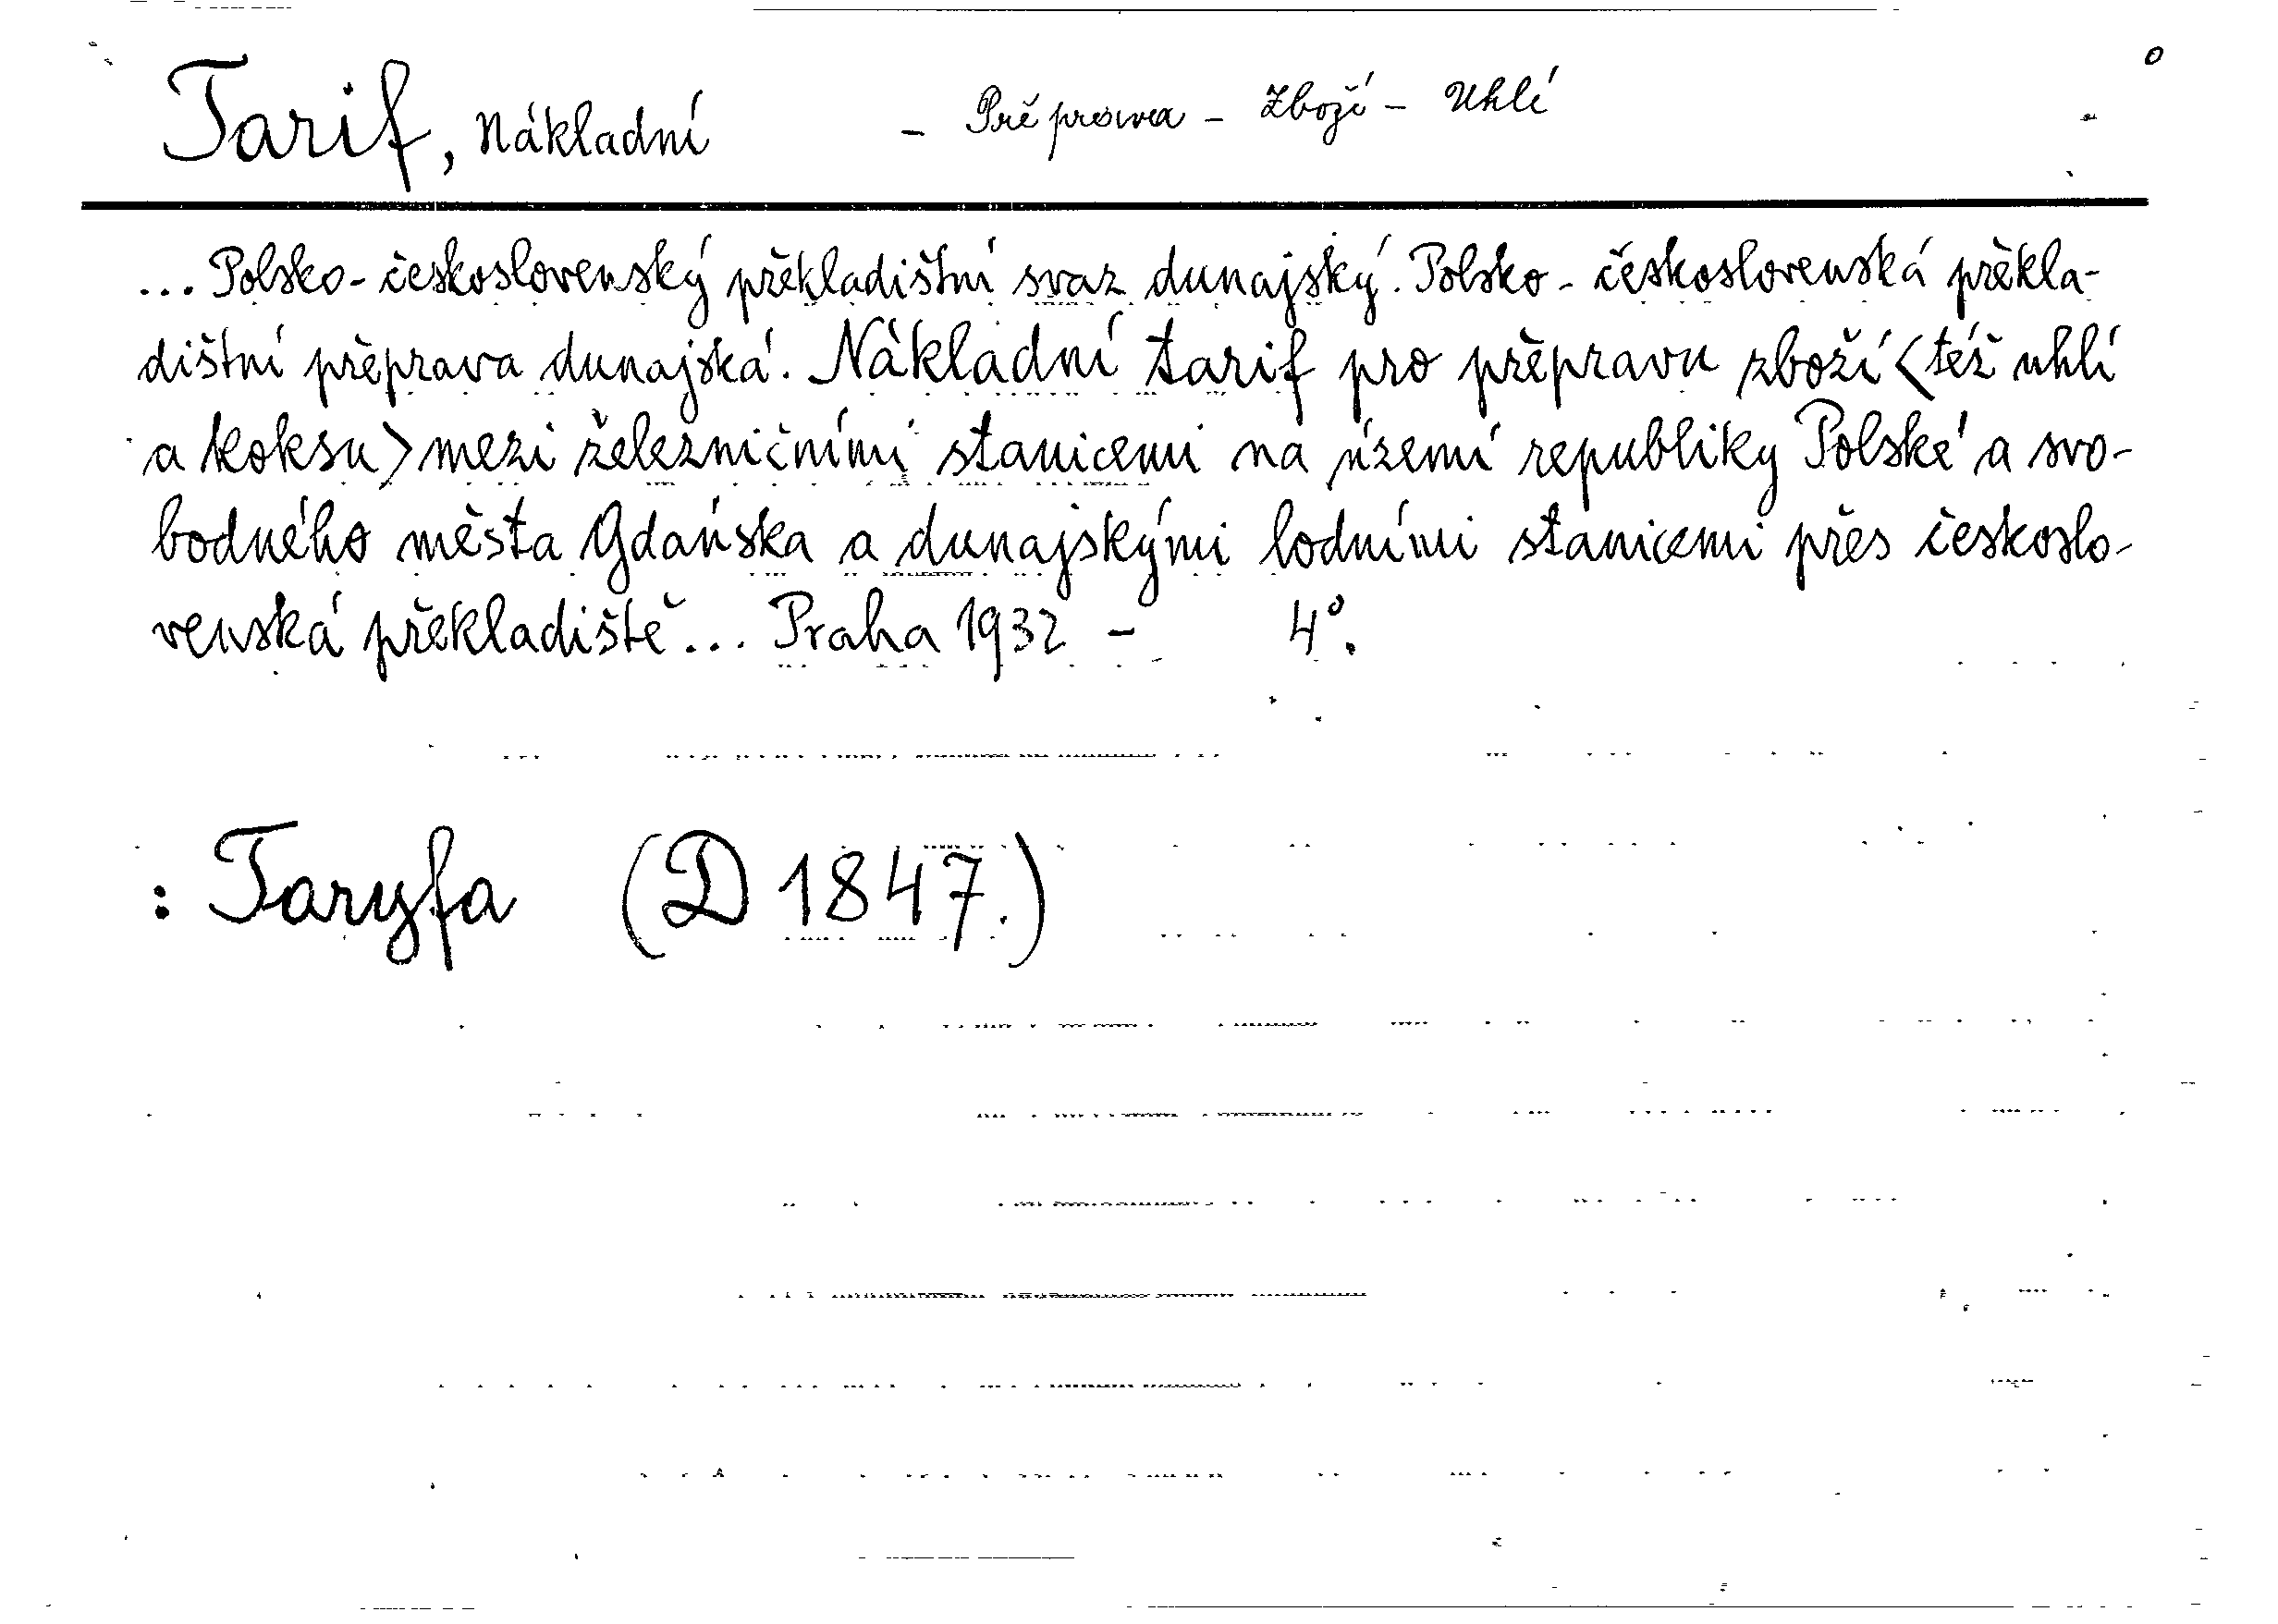 Tarif, Nákladní - Přeprava - Zboží - Uhlí
... Polsko-československý překladištní svaz dunajský. Polsko-československá překla-
dištní přeprava dunajská. Nákladní tarif pro přepravu zboží <též uhlí
a koksu> mezi železničními stanicemi na území republiky Polské a svo-
bodného města Gdańska a dunajskými lodními stanicemi přes českoslo-
venská překladiště... Praha 1932 - 4°.
: Taryfa (D 1847.)